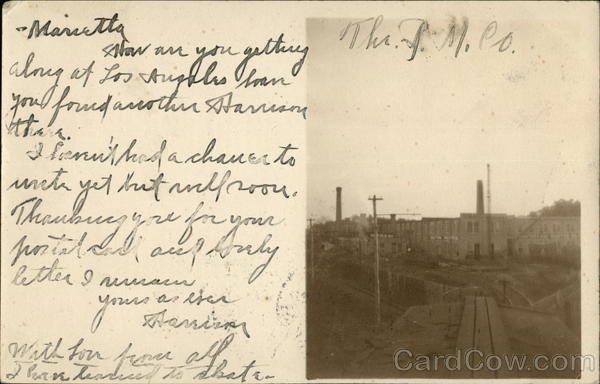 - Marietta
How are you getting
along at Los Angeles have
you found another Harrison
there.
I haven't had a chance to
write yet but will soon.
Thanking you for your
postal card and lovely
letter I remain
yours as ever
Harrison
With love from all
I have learned to skate -
The. P. M. Co.
CardCow.com